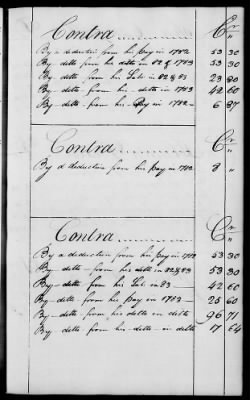 Contra Cr
By a deduction from his pay in 1782 53 30
By detto from his detto in 82 & 1783 53 30
By detto from his Sub. in 82 & 83 23 80
By detto from his detto in 1783 42 60
By detto from his Pay in 1782 6 87
Contra Cr
By a deduction from his pay in 1782 8 "
Contra Cr
By a deduction from his pay in 1782 53 30
By detto from his detto in 82 & 83 53 30
By detto from his Sub. in 83 42 60
By detto from his pay in 1783 25 60
By detto from his detto in detto 96 71
By detto from his detto in detto 17 64